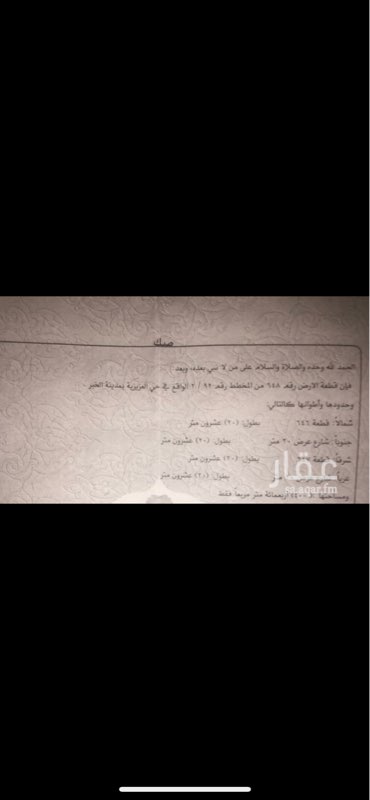 صك
الحمد لله وحده والصلاة والسلام على من لا نبي بعده، وبعد:
فإن قطعة الارض رقم ٦٤٨ من المخطط رقم ٩٢ / ٢ الواقع في حي العزيزية بمدينة الخبر .
وحدودها وأطوالها كالتالي:
شمالاً: قطعة ٦٤٦ بطول: (٢٠) عشرون متر
جنوباً: شارع عرض ٢٠ متر بطول: (٢٠) عشرون متر
شرقاً: قطعة بطول: (٢٠) عشرون متر
غرباً متر بطول: (٢٠) عشرون متر
ومساحتها أربعمائة متر مربعاً فقط
عقار
sa.aqar.fm